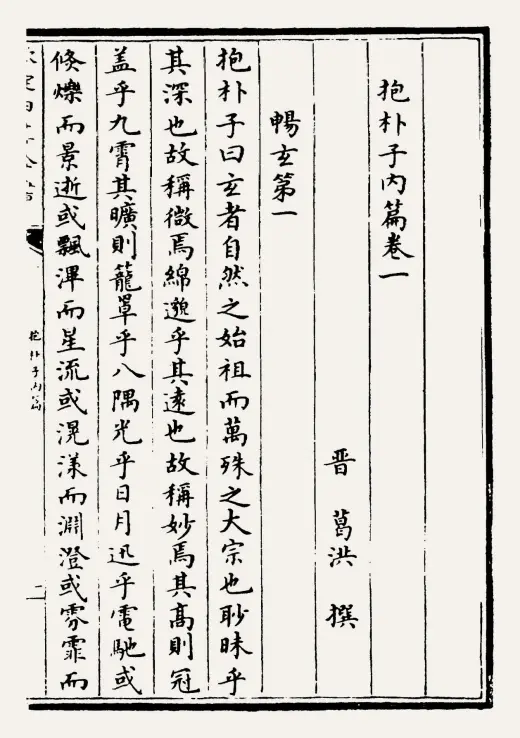 抱朴子内篇卷一
晋 葛洪 撰
暢玄第一
抱朴子曰玄者自然之始祖而萬殊之大宗也眇昧乎
其深也故稱微焉綿邈乎其遠也故稱妙焉其髙則冠
盖乎九霄其曠則籠罩乎八隅光乎日月迅乎電馳或
倐爍而景逝或飄滭而星流或滉漾而淵澄或雰霏而
抱朴子内篇